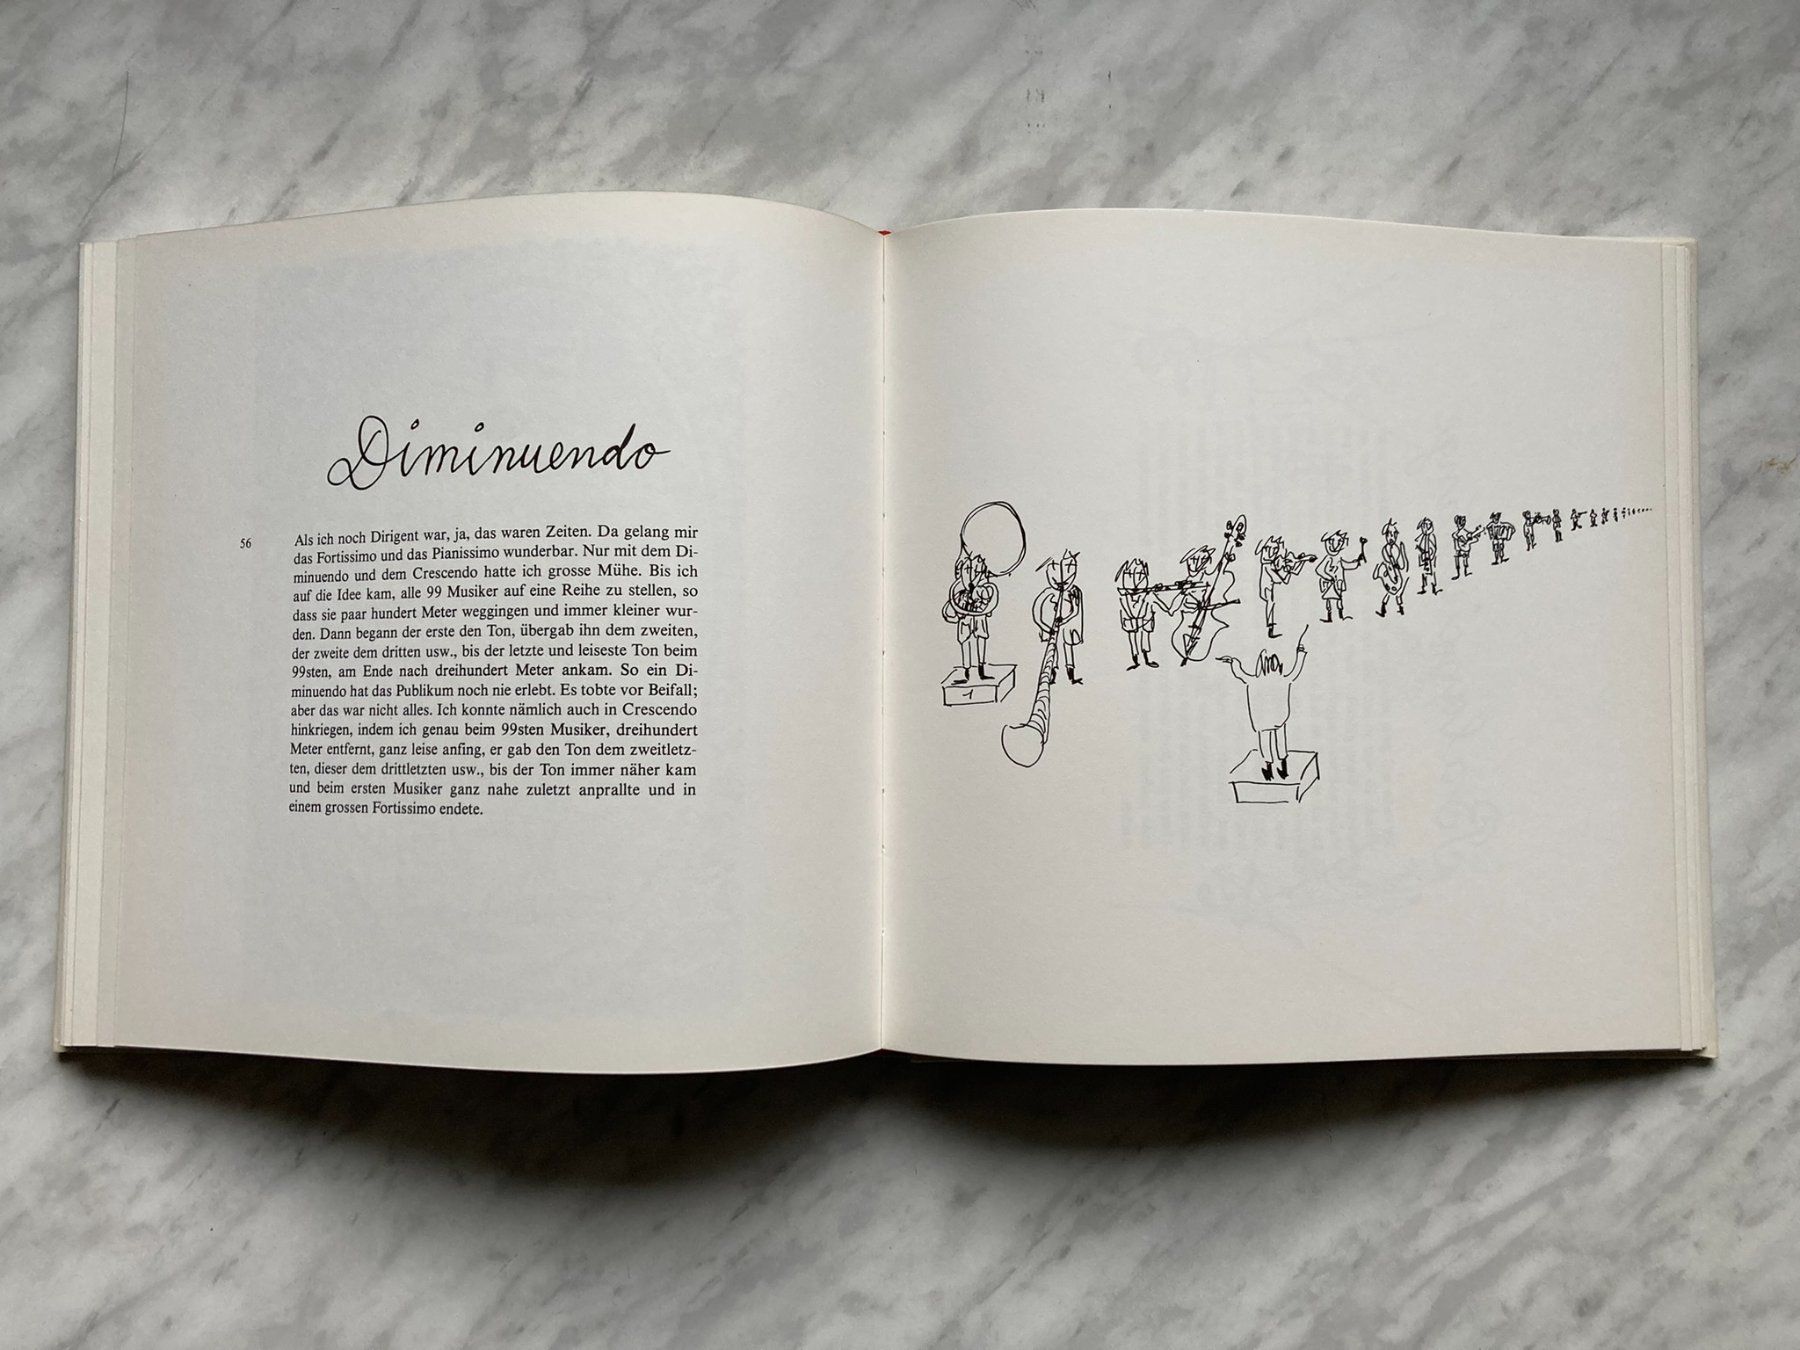 Diminuendo
56
Als ich noch Dirigent war, ja, das waren Zeiten. Da gelang mir
das Fortissimo und das Pianissimo wunderbar. Nur mit dem Di-
minuendo und dem Crescendo hatte ich grosse Mühe. Bis ich
auf die Idee kam, alle 99 Musiker auf eine Reihe zu stellen, so
dass sie paar hundert Meter weggingen und immer kleiner wur-
den. Dann begann der erste den Ton, übergab ihn dem zweiten,
der zweite dem dritten usw., bis der letzte und leiseste Ton beim
99sten, am Ende nach dreihundert Meter ankam. So ein Di-
minuendo hat das Publikum noch nie erlebt. Es tobte vor Beifall;
aber das war nicht alles. Ich konnte nämlich auch in Crescendo
hinkriegen, indem ich genau beim 99sten Musiker, dreihundert
Meter entfernt, ganz leise anfing, er gab den Ton dem zweitletz-
ten, dieser dem drittletzten usw., bis der Ton immer näher kam
und beim ersten Musiker ganz nahe zuletzt anprallte und in
einem grossen Fortissimo endete.
1